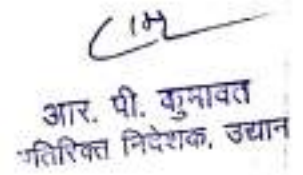 आर. पी. कुमावत
अतिरिक्त निदेशक, उद्यान